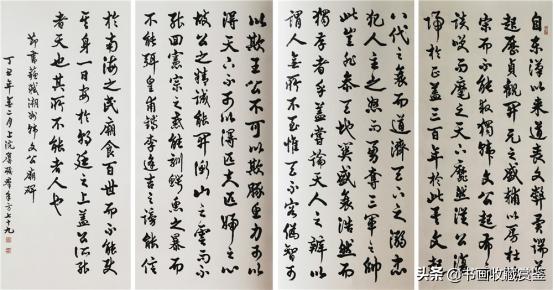 自東漢以来道喪文弊異端並
起歷貞觀開元之盛輔以房杜
宋而不能救獨韓文公起布衣
談笑而麾之天下靡然從公復
歸於正蓋三百年於此矣文起
八代之衰而道濟天下之溺忠
犯人主之怒而勇奪三軍之帥
此豈非參天地關盛衰浩然而
獨存者乎蓋嘗論天人之辨以
謂人無所不至惟天不容偽智可
以欺王公不可以欺豚魚力可以
得天下不可以得匹夫匹婦之心
故公之精誠能開衡山之雲而不
能回憲宗之惑能馴鱷魚之暴而
不能弭皇甫鎛李逢吉之謗能信
於南海之民廟食百世而不能使
其身一日安於朝廷之上蓋公之所能
者天也其所不能者人也
節書蘇軾潮州韓文公廟碑
丁丑年二月上浣年方七十九
头条 @书画收藏赏鉴